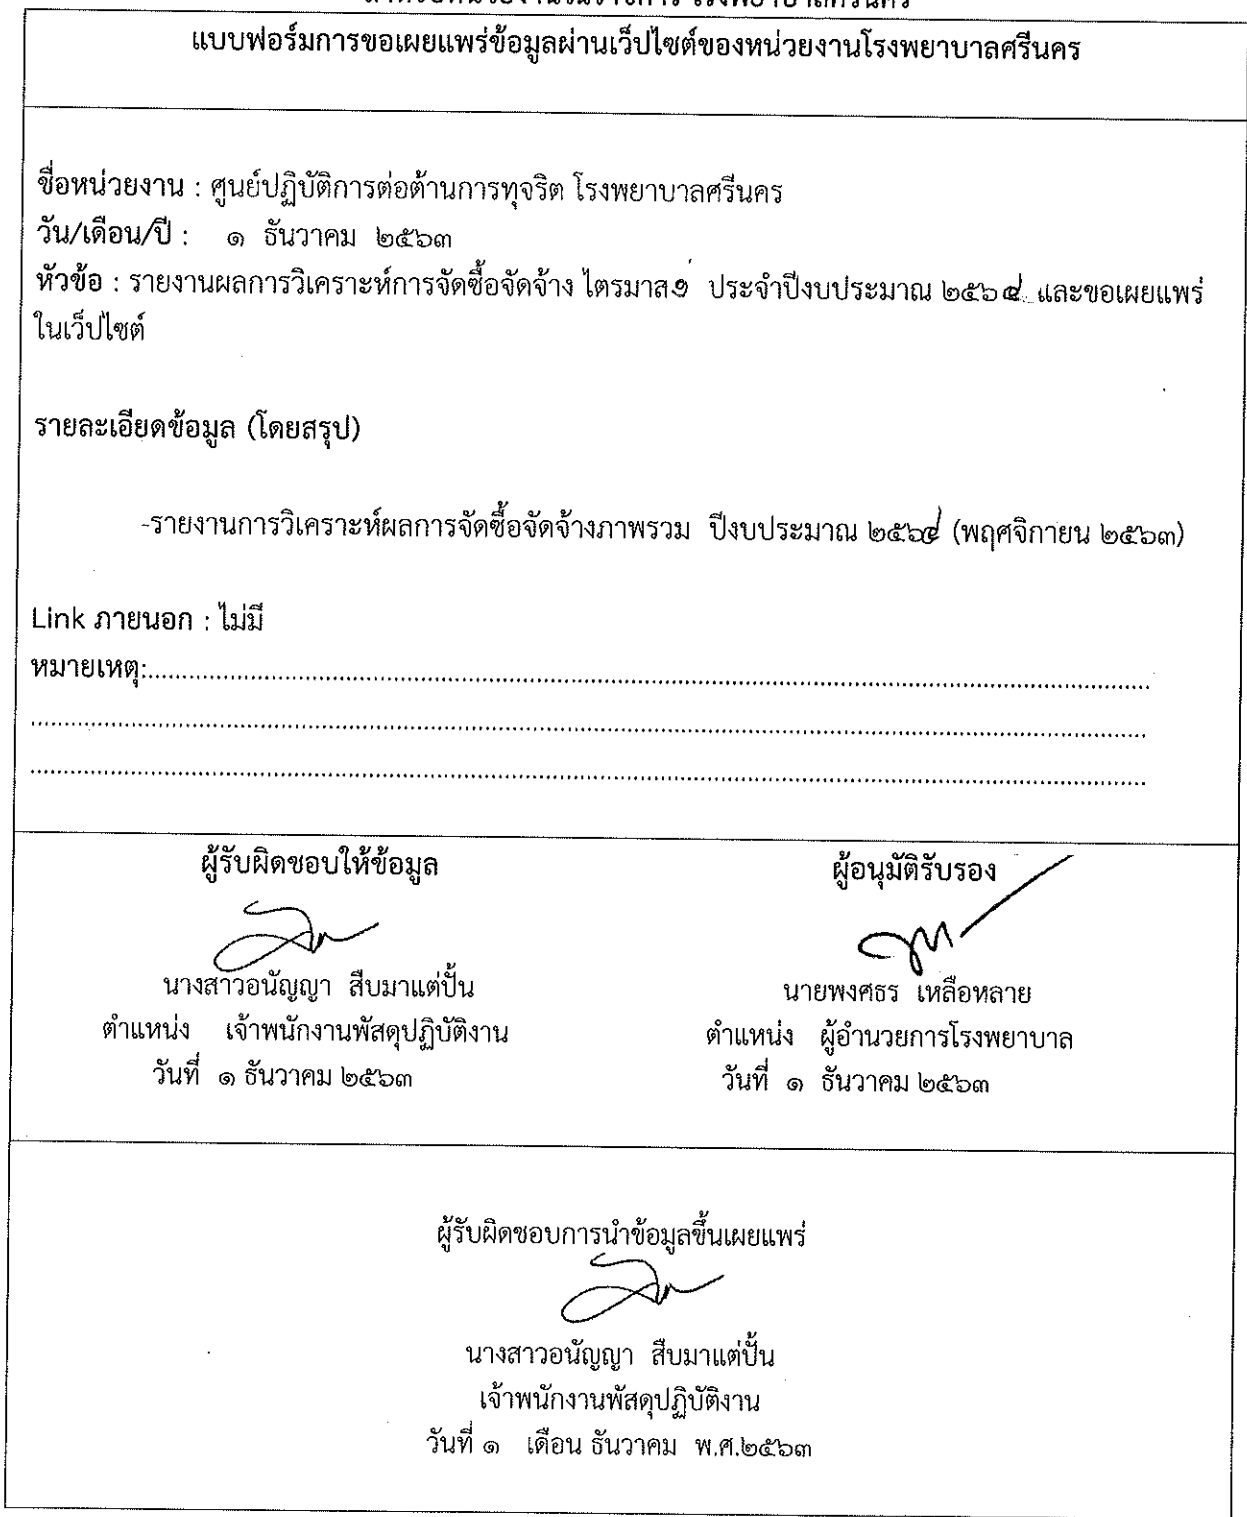 แบบฟอร์มการขอเผยแพร่ข้อมูลผ่านเว็ปไซต์ของหน่วยงานโรงพยาบาลศรีนคร
ชื่อหน่วยงาน : ศูนย์ปฏิบัติการต่อต้านการทุจริต โรงพยาบาลศรีนคร
วัน/เดือน/ปี : ๑ ธันวาคม ๒๕๖๓
หัวข้อ : รายงานผลการวิเคราะห์การจัดซื้อจัดจ้าง ไตรมาส ประจำปีงบประมาณ ๒๕๖๔ และขอเผยแพร่
ในเว็ปไซต์
รายละเอียดข้อมูล (โดยสรุป)
-รายงานการวิเคราะห์ผลการจัดซื้อจัดจ้างภาพรวม ปีงบประมาณ ๒๕๖๔ (พฤศจิกายน ๒๕๖๓)
Link ภายนอก : ไม่มี
หมายเหตุ:..........
ผู้รับผิดชอบให้ข้อมูล
นางสาวอนัญญา สืบมาแต่ปั้น
ตำแหน่ง เจ้าพนักงานพัสดุปฏิบัติงาน
วันที่ ๑ ธันวาคม ๒๕๖๓
ผู้อนุมัติรับรอง
นายพงศธร เหลือหลาย
ตำแหน่ง ผู้อำนวยการโรงพยาบาล
วันที่ ๑ ธันวาคม ๒๕๖๓
ผู้รับผิดชอบการนำข้อมูลขึ้นเผยแพร่
นางสาวอนัญญา สืบมาแต่ปั้น
เจ้าพนักงานพัสดุปฏิบัติงาน
วันที่ ๑ เดือน ธันวาคม พ.ศ.๒๕๖๓